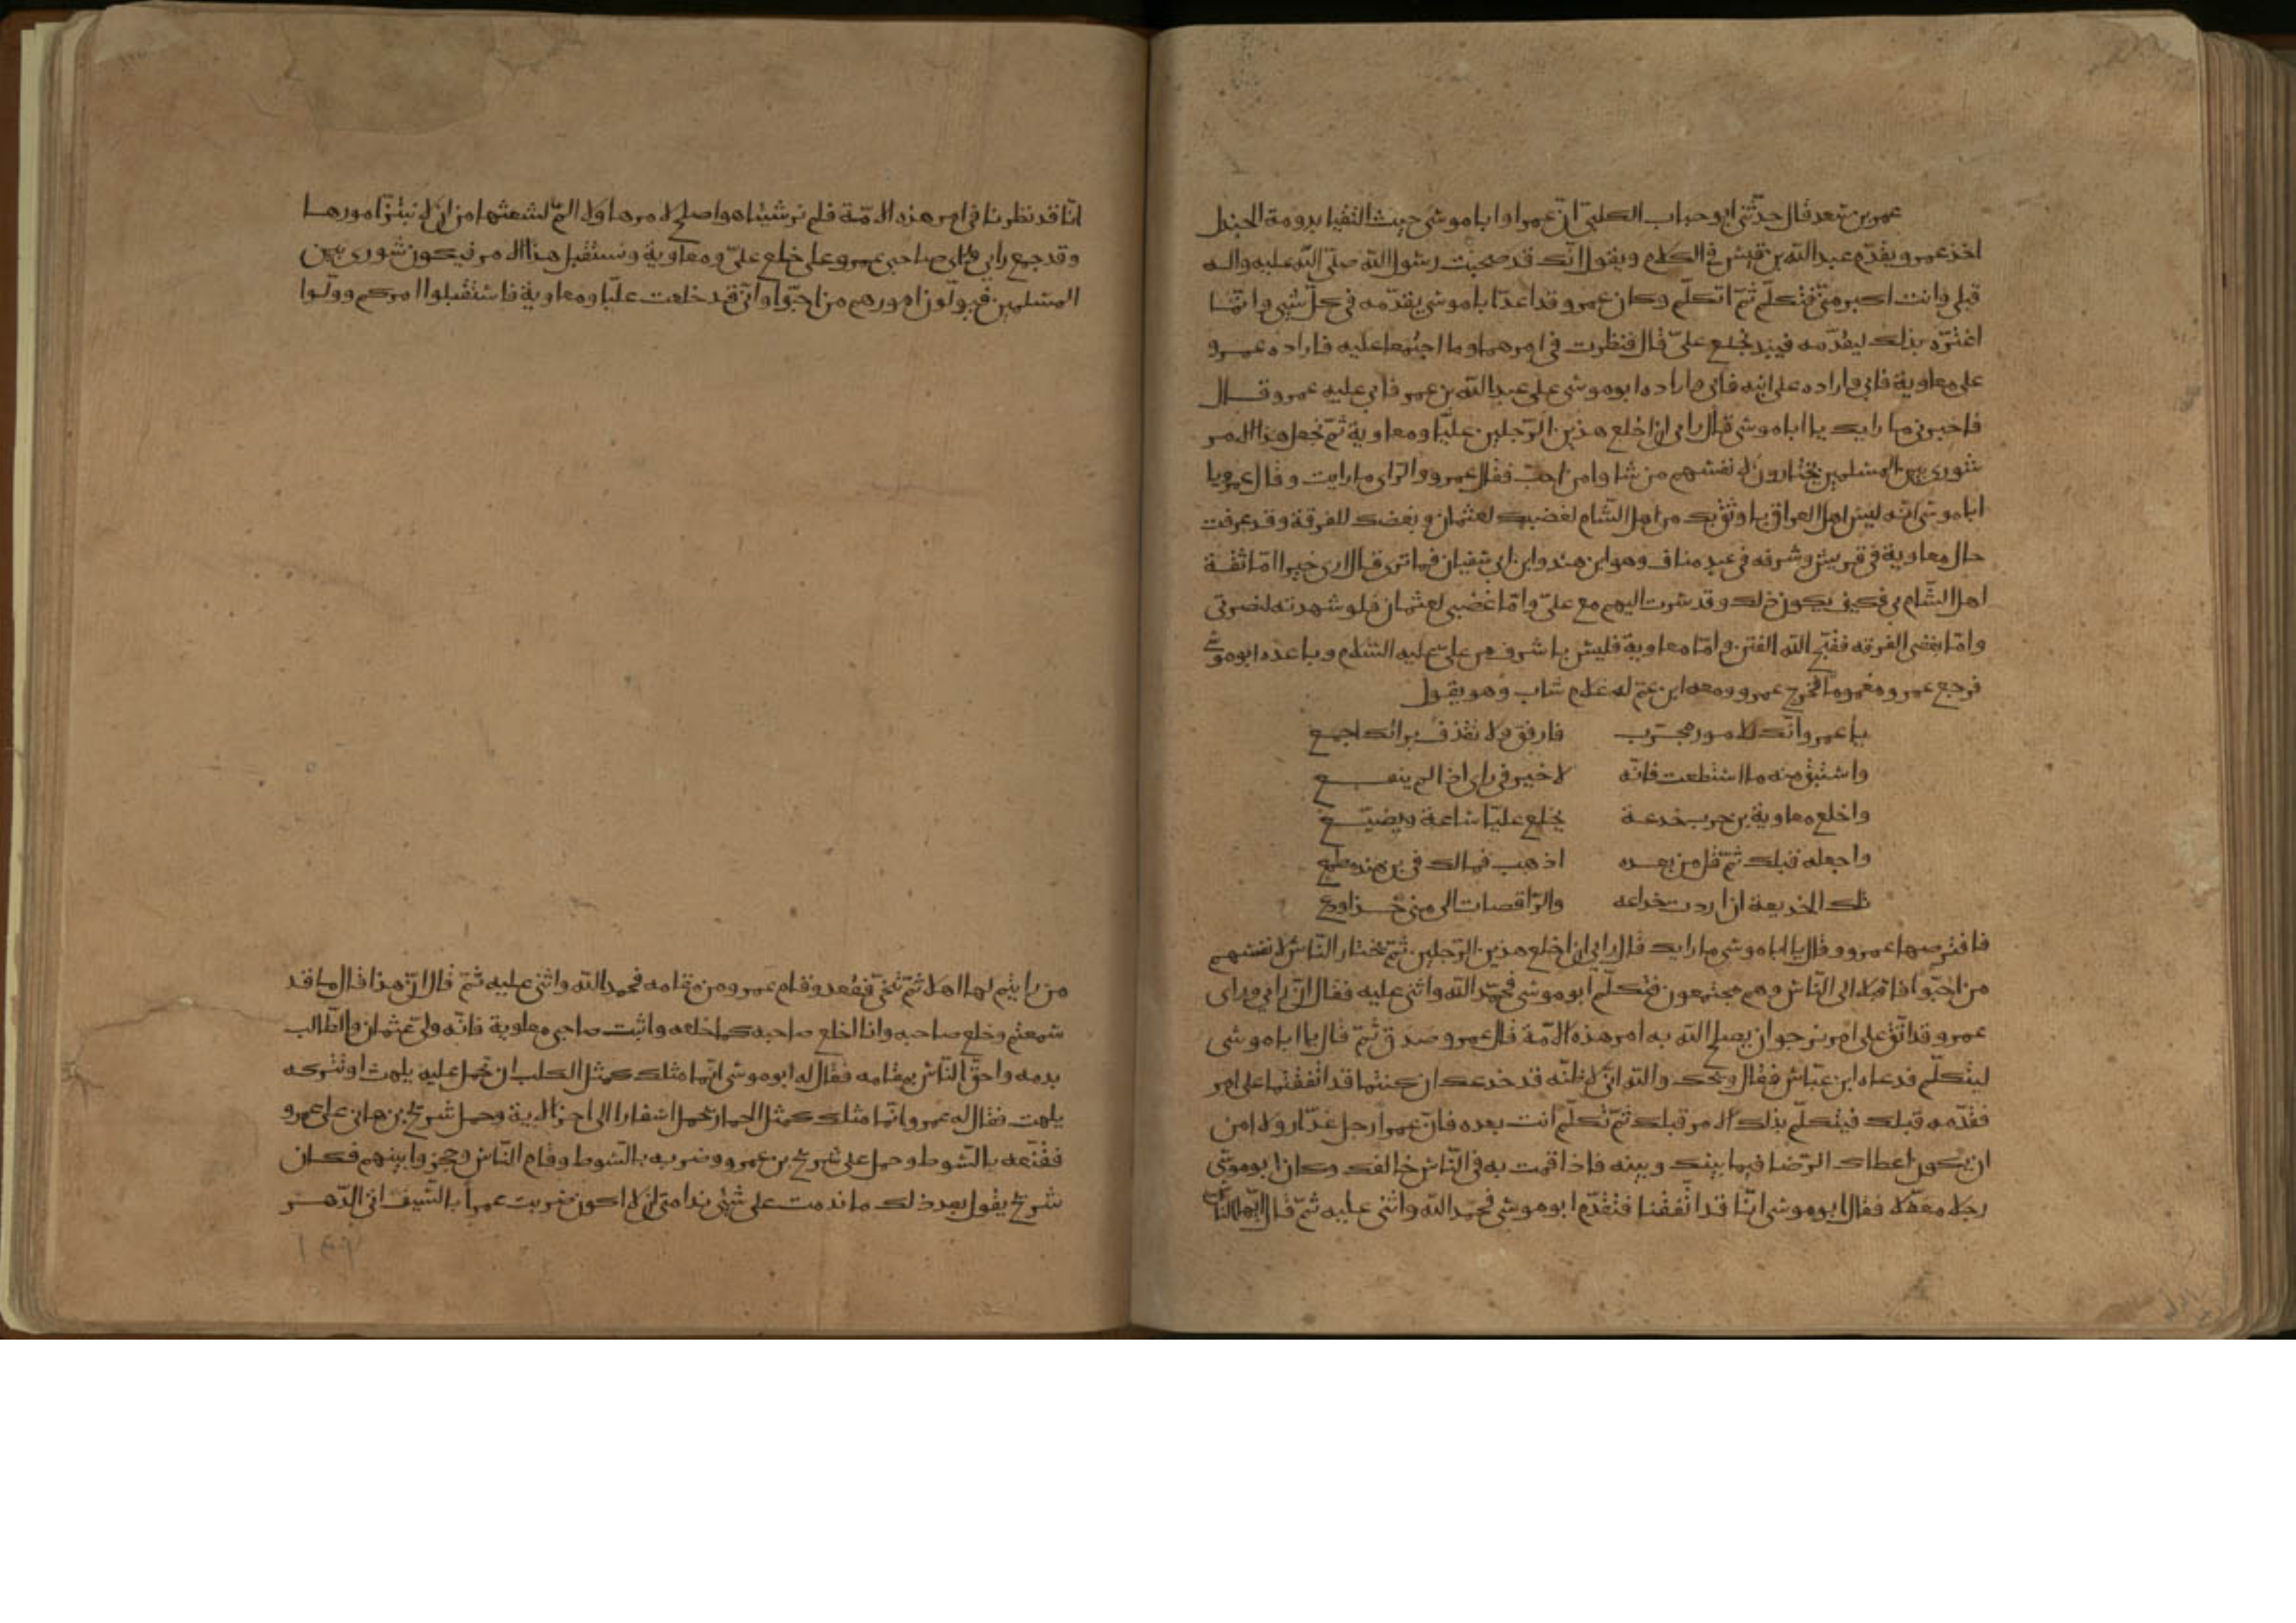 عمر بن سعد قال حدّثني ابو حباب الكلبيّ انّ عمرا وابا موسى حيث التقيا بدومة الجندل
اخذ عمرو يقدّم عبد اللّه بن قيس في الكلام ويقول انّك قد صحبت رسول اللّه صلّى اللّه عليه واله
قبلي وانت اكبر منّي فتكلّم ثمّ اتكلّم وكان عمرو قد اعدّ ابا موسى يقدّمه في كلّ شيي وانّما
اغترّه بذلك ليقدّمه فيبد بخلع عليّ قال فنظرت في امرهما وما اجتمعا عليه فاراده عمرو
على معاوية فابى فاراده على ابنه فابى فاراده ابو موسى على عبد اللّه بن عمر فابى عليه عمرو قال
فاخبرني ما رايك يا ابا موسى قال رايي ان اخلع هذين الرّجلين عليّا ومعاوية ثمّ نجعل هذا الامر
شورى بين المسلمين يختارون لانفسهم من شاوا من احبّ فقال عمرو والرّاي ما رايت وقال عمرو يا
ابا موسى انّه ليس اهل العراق با وثق بك من اهل الشّام لغضبك لعثمان وبغضك للفرقة وقد عرفت
حال معاوية في قريش وشرفه في عبد مناف وهو ابن هند وابن ابي سفيان فما ترى قال ارى خيرا امّا ثقة
اهل الشّام بي فكيف يكون ذلك وقد سرت اليهم مع عليّ وامّا غضبي لعثمان فلو شهدته لنصرتي
وامّا بغضي الفرقه فقبّح اللّه الفتن وامّا معاوية فليس باشرف من عليّ عليه السّلام وباعده ابو موسى
فرجع عمرو مغموما فخرج عمرو ومعه ابن عمّ له غلام شاب وهو يقول
يا عمرو انّك للامور مجرّب فارفق ولا تقذف برائك اجمع
واستبق منه ما استطعت فانّه لا خير في راي اذا لم ينفع
واخلع معاوية بن حرب خدعة يخلع عليّا ساعة ويضيّع
واجعله قبلك ثمّ قل من بعده اذهب فمالك في بن هند مطمع
تلك الخديعة ان اردت خداعه والرّاقصات الى منى خذ اودع
فافترصها عمرو وقال يا ابا موسى ما رايك قال رايي ان اخلع هذين الرّجلين ثمّ نختار النّاس لانفسهم
من احبّوا فاقبلا الى النّاس وهم مجتمعون فتكلّم ابو موسى فحمّد اللّه واثنى عليه فقال انّ رايي وراى
عمرو قد اتّفق على امر نرجو ان يصلح اللّه به امر هذه الامّة قال عمرو صدق ثمّ قال يا ابا موسى
ليتكلّم فدعاه ابن عبّاس فقال ويحك واللّه انّي لاظنّه قد خدعك ان كنتما قد اتّفقتما على امر
فقدّمه قبلك فيتكلّم بذلك الامر قبلك ثمّ تكلّم انت بعده فانّ عمرا رجل غدّار ولا امن
ان يكون اعطاك الرّضا فيما بينك وبينه فاذا قمت به في النّاس خالفك وكان ابو موسى
رجلا مغفّلا فقال ابو موسى انّا قد اتّفقنا فتقدّم ابو موسى فحمّد اللّه واثنى عليه ثمّ قال ايّها النّاس
انّا قد نظرنا في امر هذه الامّة فلم نر شيئا هو اصلح لامرها ولا المّ لشعثها من ان لا نبتزّ امورها
وقد جمع رايي وراي صاحبي عمرو على خلع عليّ ومعاوية ونستقبل هذا الامر فيكون شورى بين
المسلمين فيولّون امورهم من احبّوا وانّي قد خلعت عليّا ومعاوية فاستقبلوا امركم وولّوا
من رايتم لها اهلا ثمّ تنحّى فقعد وقام عمرو من مقامه فحمد اللّه واثنى عليه ثمّ قال انّ هذا قال ما قد
سمعتم وخلع صاحبه وانا اخلع صاحبه كما خلعه واثبت صاحبي معاوية فانّه وليّ عثمان والطّالب
بدمه واحقّ النّاس بمقامه فقال له ابو موسى انّما مثلك كمثل الكلب ان تحمل عليه يلهث او تتركه
يلهث فقال له عمرو وانّما مثلك كمثل الحمار يحمل اسفارا الى اخر الاية وحمل شريح بن هاني على عمرو
فقنّعه بالسّوط وحمل على شريح بن عمرو وضربه بالسّوط وقام النّاس وحجزوا بينهم فكان
شريح يقول بعد ذلك ما ندمت على شيئ ندامتي ان لا اكون ضربت عمراً بالسّيف اتى الدّهر